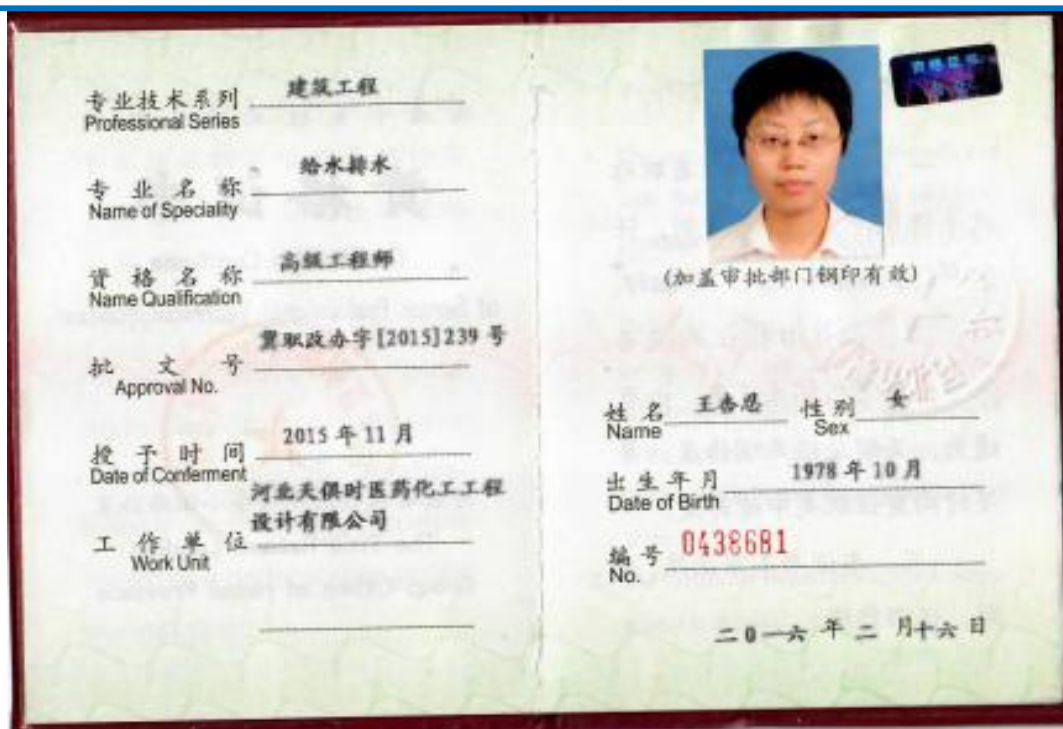 专业技术系列 建筑工程
Professional Series
专业名称 给水排水
Name of Speciality
资格名称 高级工程师
Name Qualification
冀职改办字[2015]239号
批文号
Approval No.
授予时间 2015年11月
Date of Conferment
河北天俱时医药化工工程
设计有限公司
工作单位
Work Unit
(加盖审批部门钢印有效)
姓名 王 性别 女
Name Sex
出生年月 1978年10月
Date of Birth
编号 0438681
No.
二0一六年二月十六日